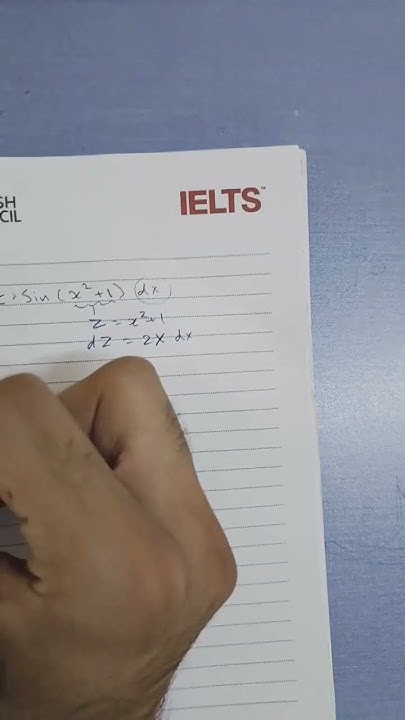 SH
CIL
IELTS™
· sin (x² + 1) dx
z = x² + 1
dz = 2x dx